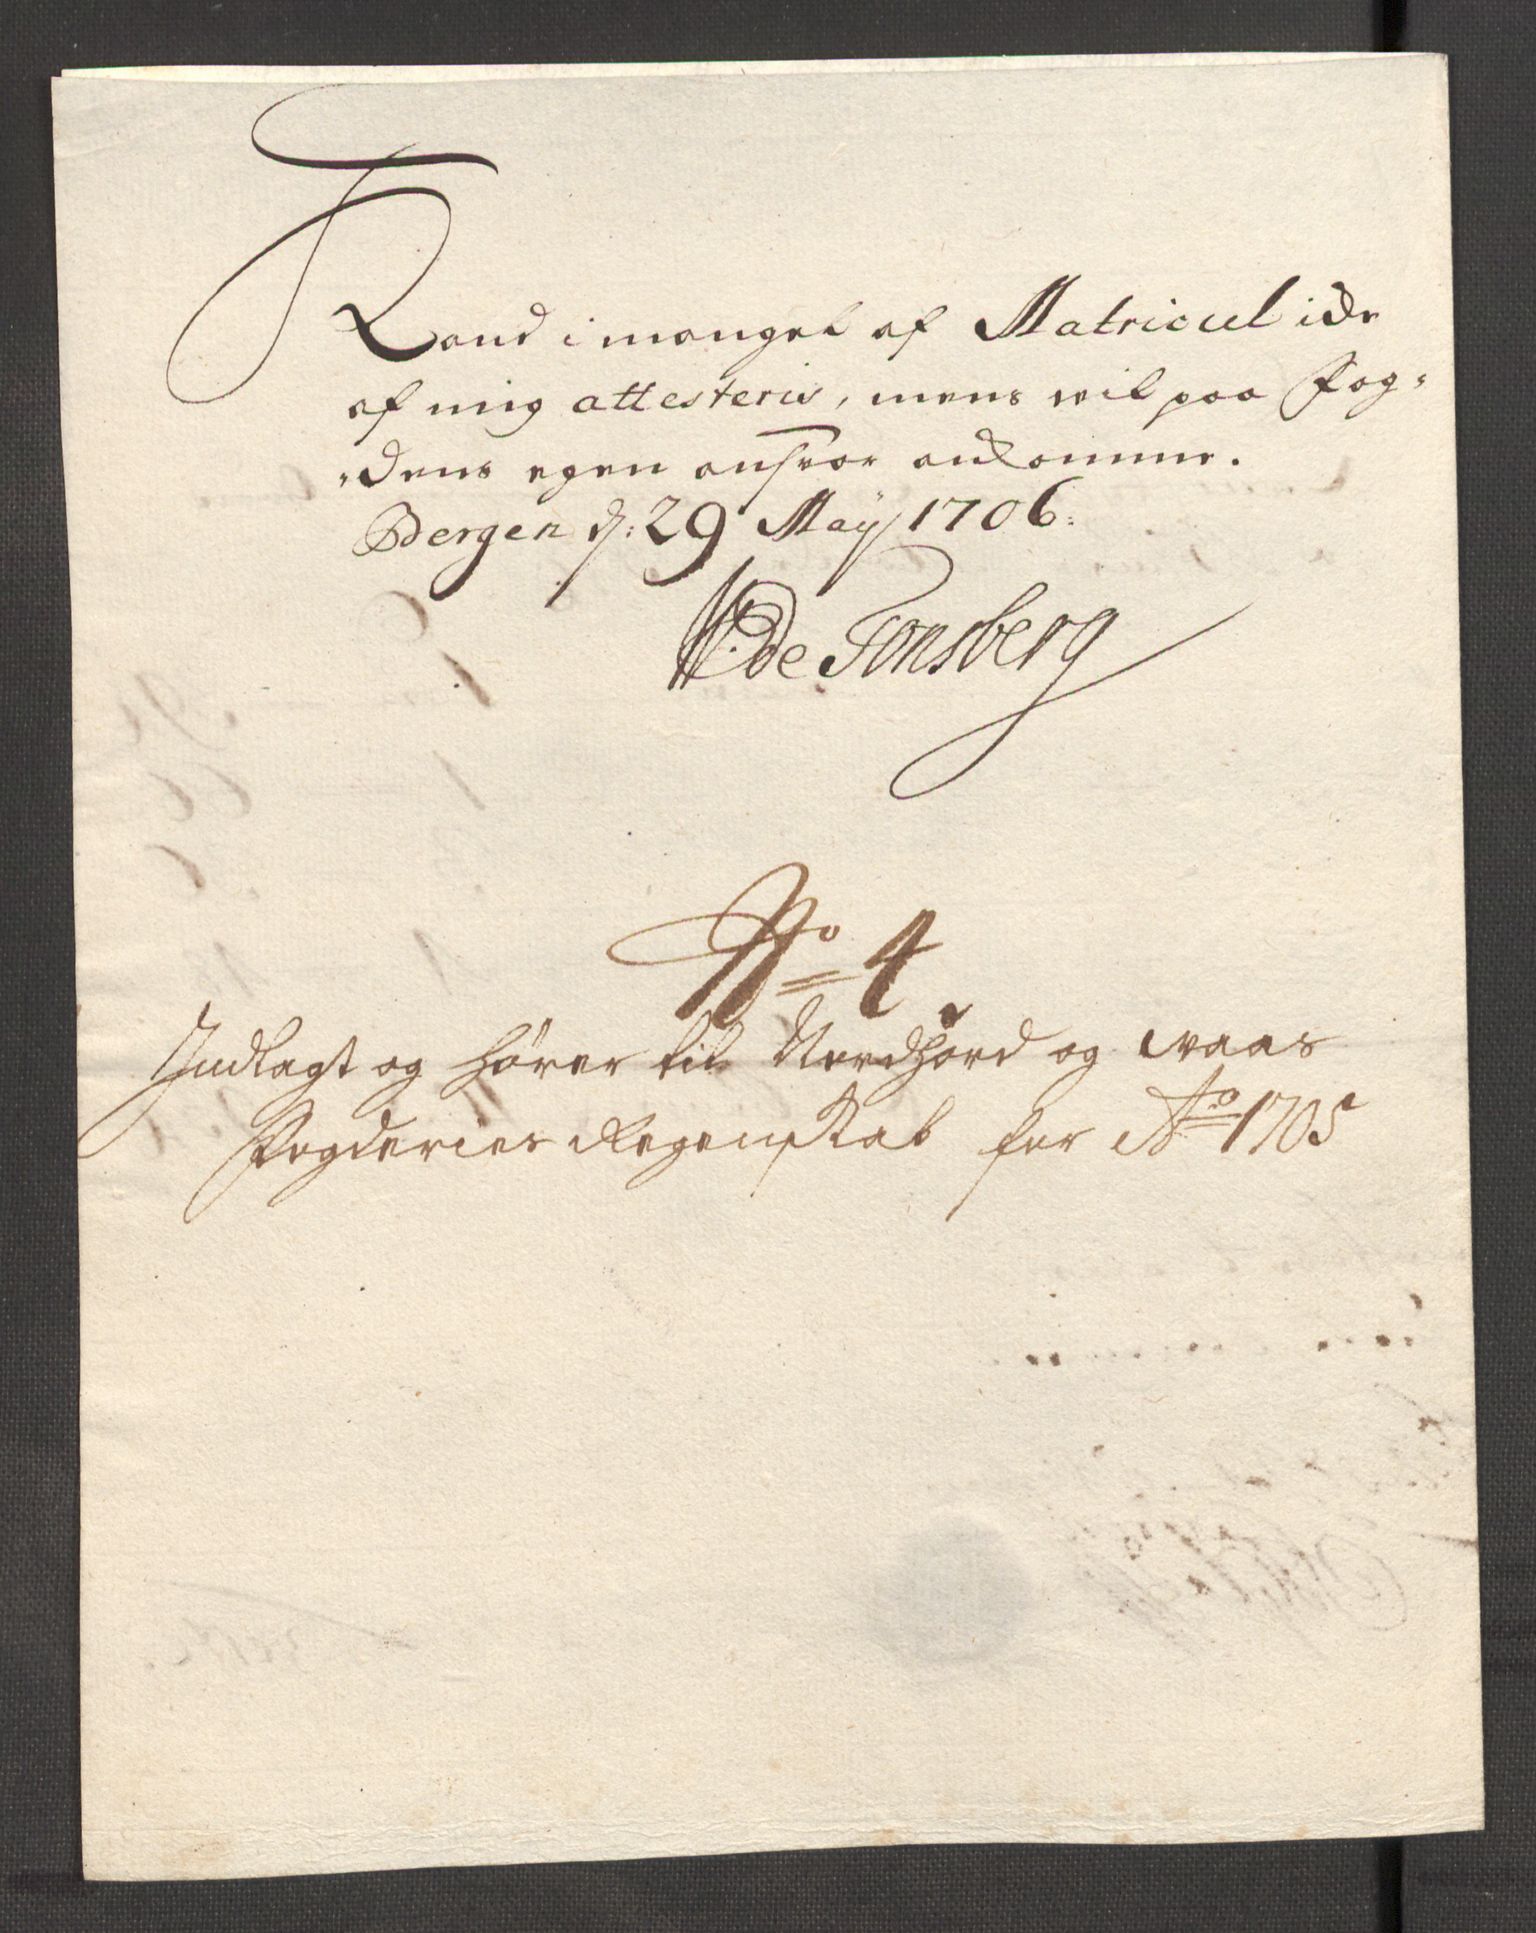 Kand i mangel af Matricul icke
af mig attesteris, mens vil paa Fog-
-dens egen ansvar ankomme.
Bergen d: 29 May 1706.
W de Tonsberg
No 4
Indlagt og hører til Nordhord og Waas
Fogderies Regenskab for Ao 1705